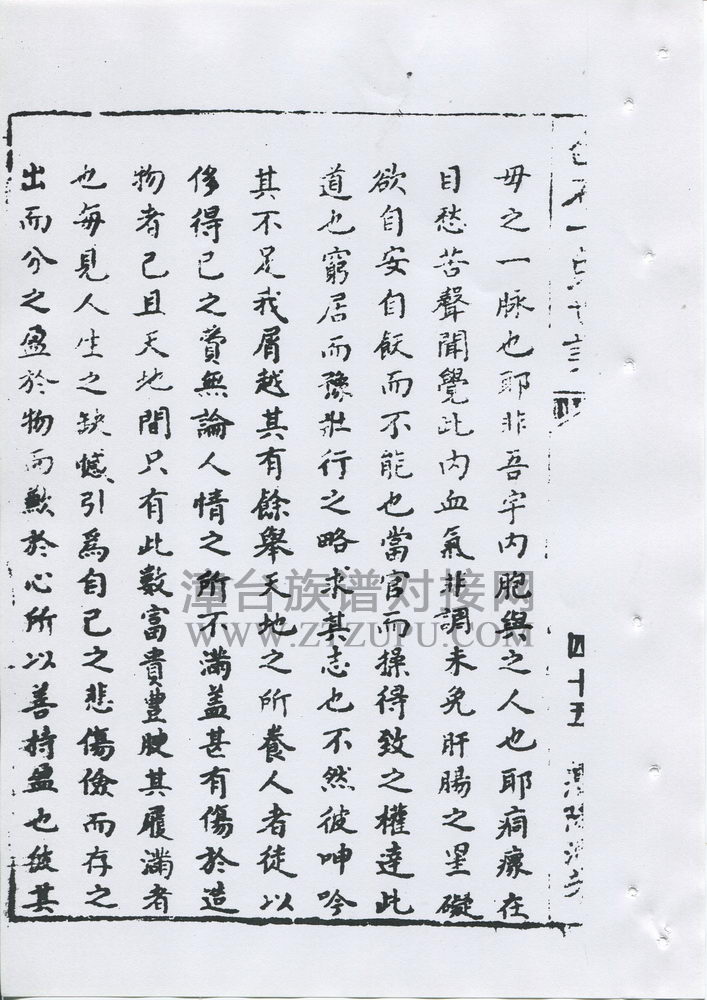 四十五
母之一脉也耶非吾宇内胞與之人也耶痌瘝在
目愁苦聲聞覺此内血氣非調未免肝腸之罣礙
欲自安自飫而不能也當官而操得致之權達此
道也窮居而豫壯行之略求其志也不然彼呻吟
其不足我屑越其有餘舉天地之所養人者徒以
侈得已之賞無論人情之所不滿盖甚有傷於造
物者已且天地間只有此數富貴豐腴其履滿者
也每見人生之缺憾引為自己之悲傷儉而存之
出而分之盈於物而歉於心所以善持盈也彼其
漳台族谱对接网
WWW.ZTZUPU.COM